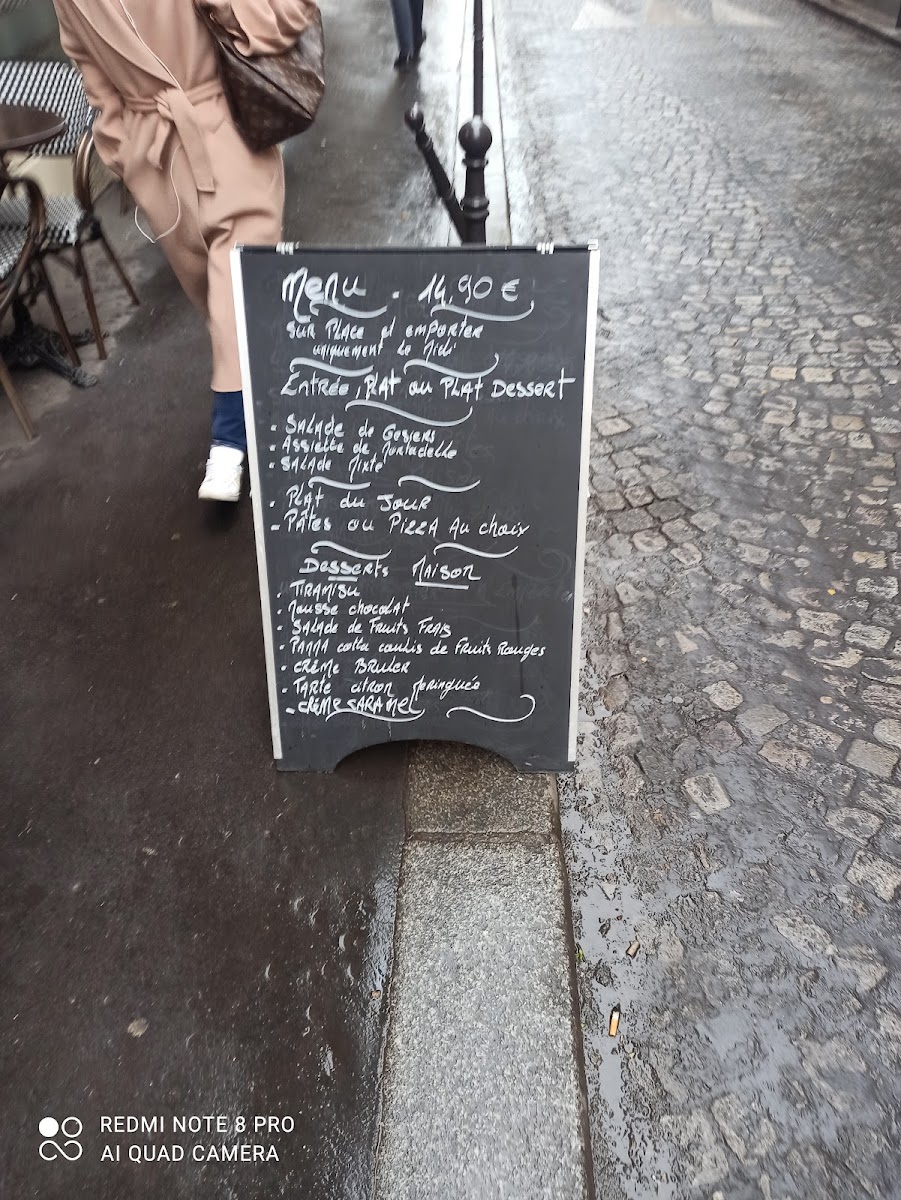 Menu . 14,90 €
SUR PLACE et EMPORTER
uniquement Le Midi
Entrée, PLAT ou PLAT DESSERT
• SALADE de Gesiers
• Assiette de Mortadelle
• SALADE Mixte
• PLAT du JOUR
- PÂTES ou PIZZA Au choix
Desserts Maison
• TIRAMISU
• Mousse chocolat
• SALADE de Fruits FRAIS
• PANNA cotta coulis de Fruits Rouges
• CRÈME BRULER
• TARTE citron Meringuée
- CRÈME CARAMEL
REDMI NOTE 8 PRO
AI QUAD CAMERA